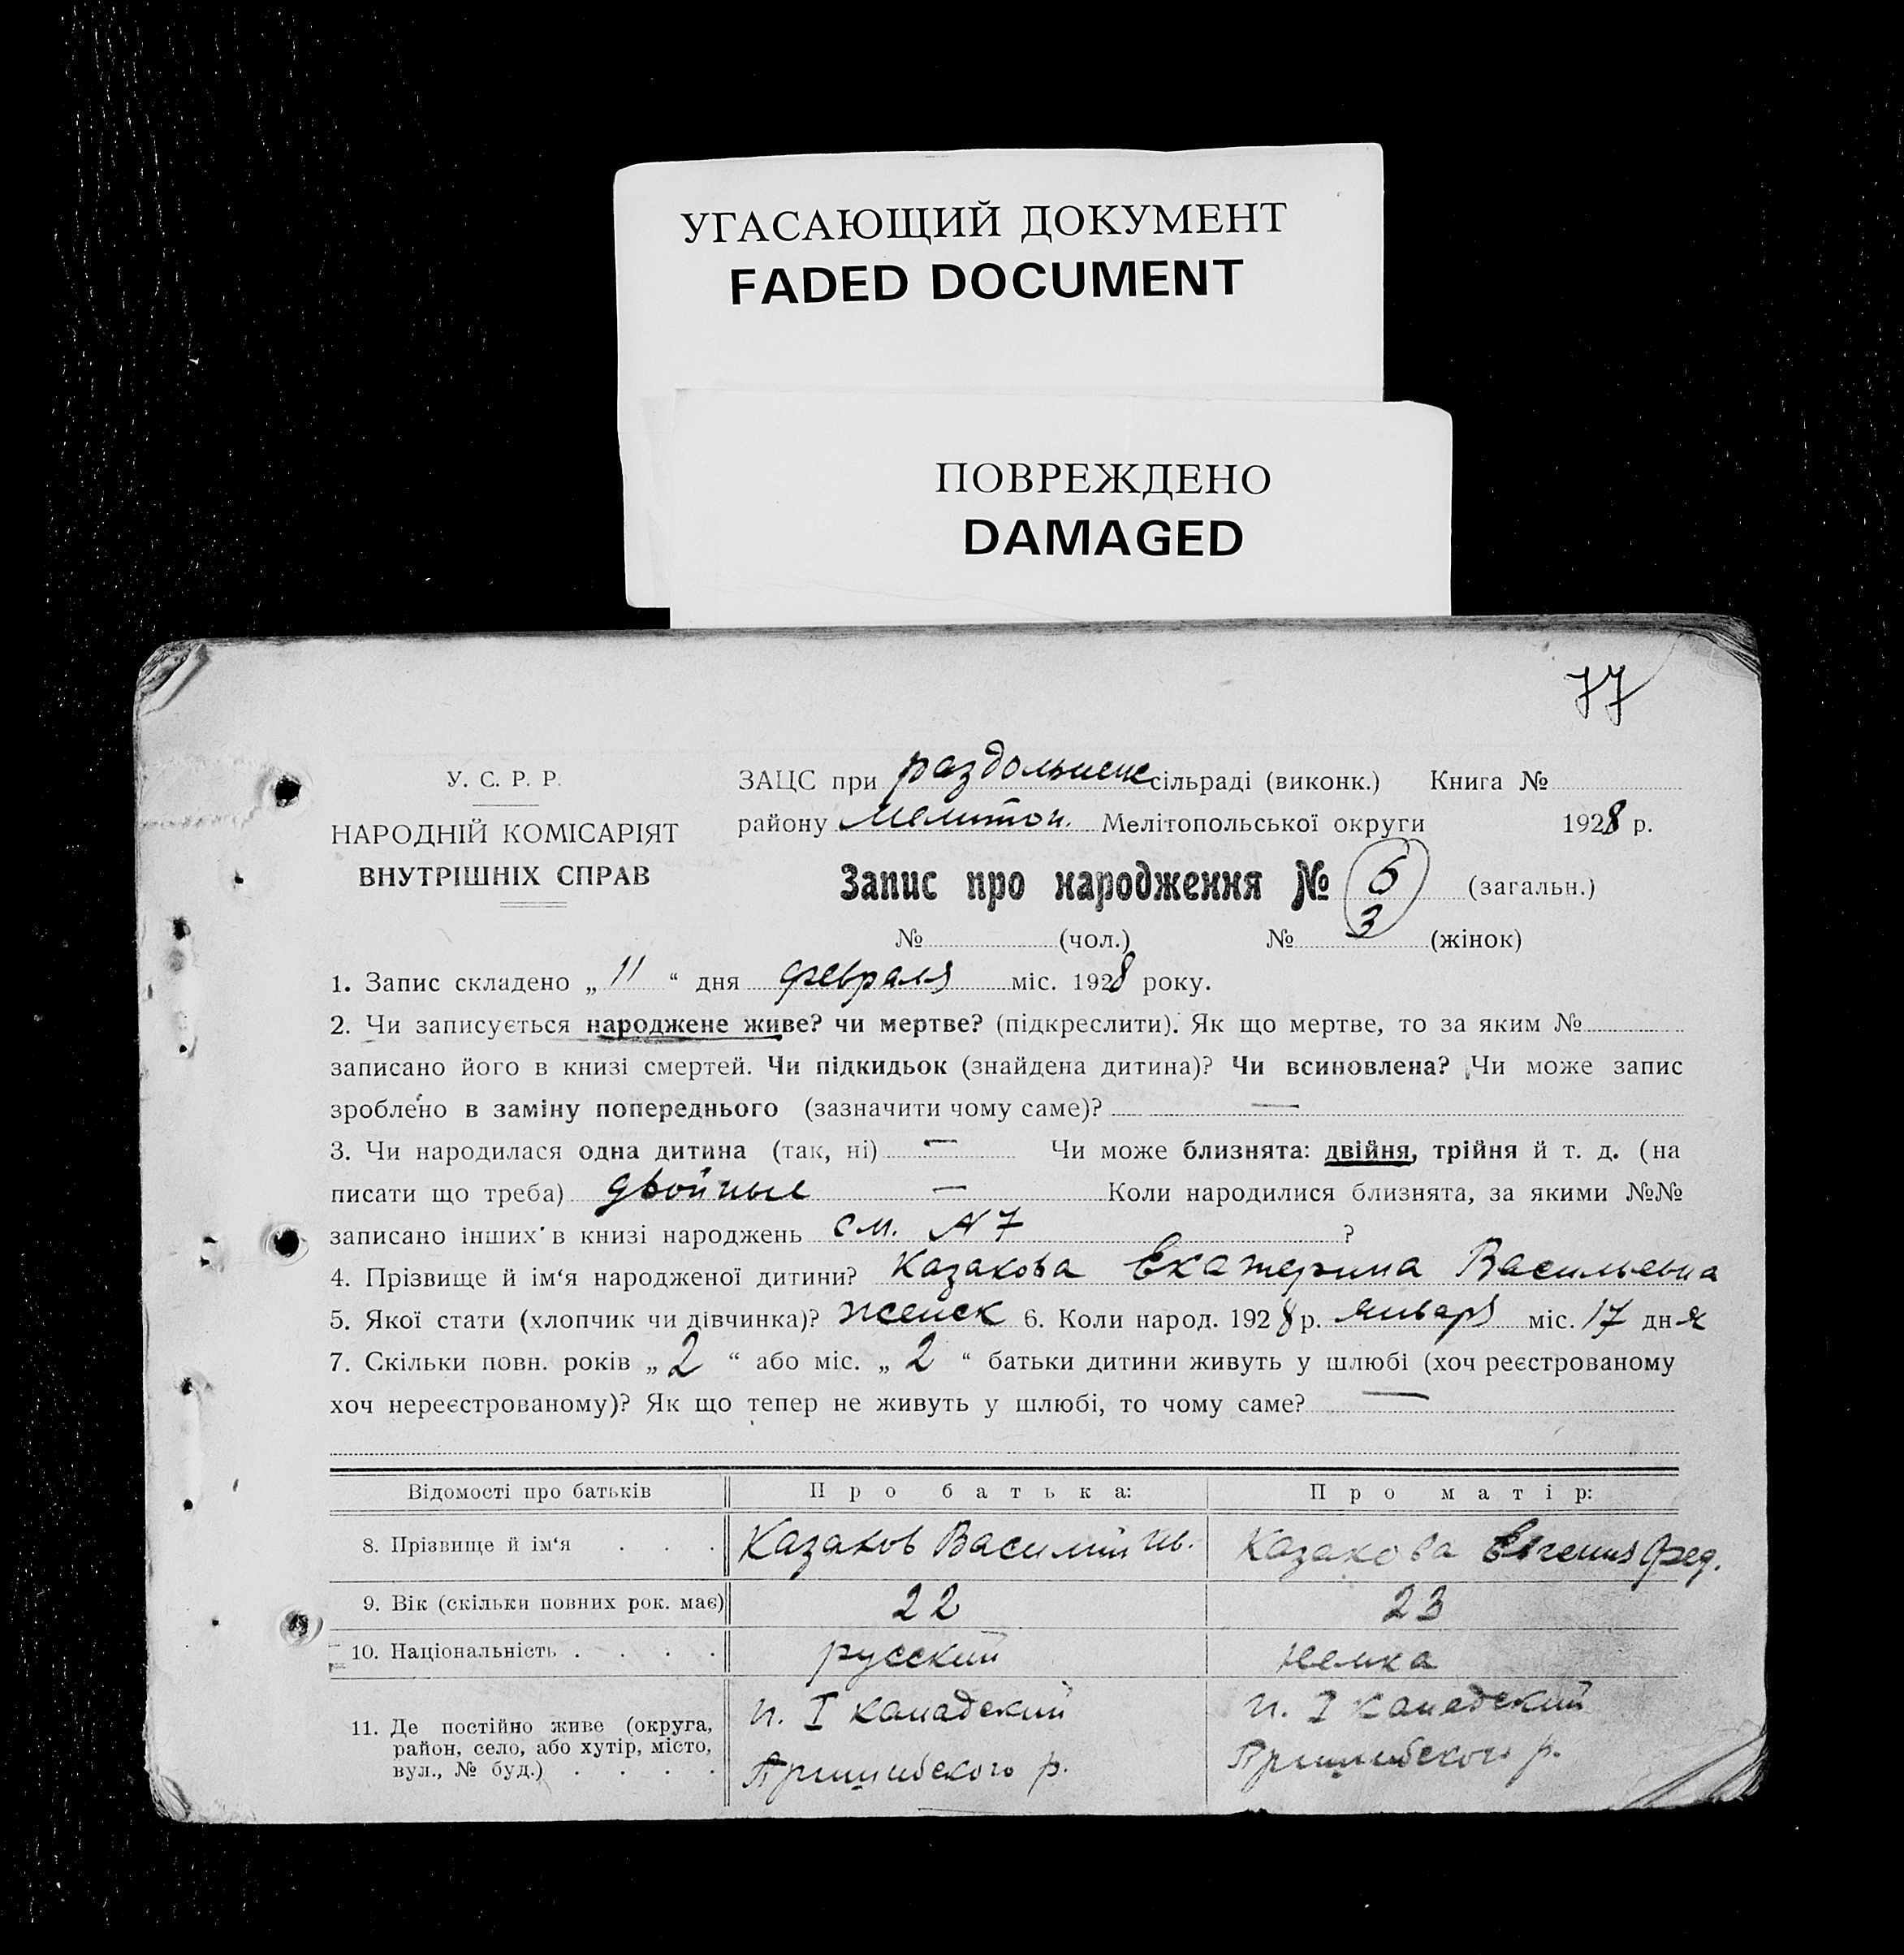 УГАСАЮЩИЙ ДОКУМЕНТ
FADED DOCUMENT
ПОВРЕЖДЕНО
DAMAGED
77
У. С. Р. Р.
НАРОДНІЙ КОМІСАРІЯТ
ВНУТРІШНІХ СПРАВ
ЗАЦС при раздольненс сільраді (виконк.) Книга №
району Мелитоп. Мелітопольської округи 1928 р.
Запис про народження № 6 (загальн.)
№ (чол.) № 3 (жінок)
1. Запис складено „ 11 “ дня февраля міс. 1928 року.
2. Чи записується народжене живе? чи мертве? (підкреслити). Як що мертве, то за яким №
записано його в книзі смертей. Чи підкидьок (знайдена дитина)? Чи всиновлена? Чи може запис
зроблено в заміну попереднього (зазначити чому саме)? —
3. Чи народилася одна дитина (так, ні) — Чи може близнята: двійня, трійня й т. д. (на
писати що треба) двойные — Коли народилися близнята, за якими №№
записано інших в книзі народжень см. № 7 ?
4. Прізвище й ім‘я народженої дитини? Казакова Екатерина Васильевна
5. Якої стати (хлопчик чи дівчинка)? женск 6. Коли народ. 1928 р. января міс. 17 дня
7. Скільки повн. років „ 2 “ або міс. „ 2 “ батьки дитини живуть у шлюбі (хоч реєстрованому
хоч нереєстрованому)? Як що тепер не живуть у шлюбі, то чому саме? —
Відомості про батьків Про батька: Про матір:
8. Прізвище й ім‘я . . . Казаков Василий Ив. Казакова Евгения Фед.
9. Вік (скільки повних рок. має) 22 23
10. Національність . . . . русский немка
11. Де постійно живе (округа, п. I Канадский п. I Канадский
район, село, або хутір, місто,
вул., № буд.) . . . . Пришибского р. Пришибского р.